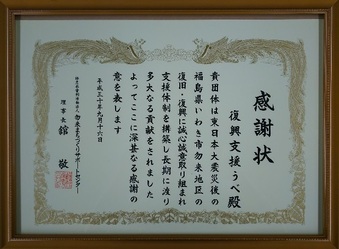 感謝状
復興支援うべ殿
貴団体は東日本大震災後の
福島県いわき市勿来地区の
復旧・復興に誠心誠意取り組まれ
支援体制を構築し長期に渡り
多大なる貢献をされました
よってここに深甚なる感謝の
意を表します
平成三十年九月十六日
特定非営利活動法人 勿来まちづくりサポートセンター
理事長 舘 敬